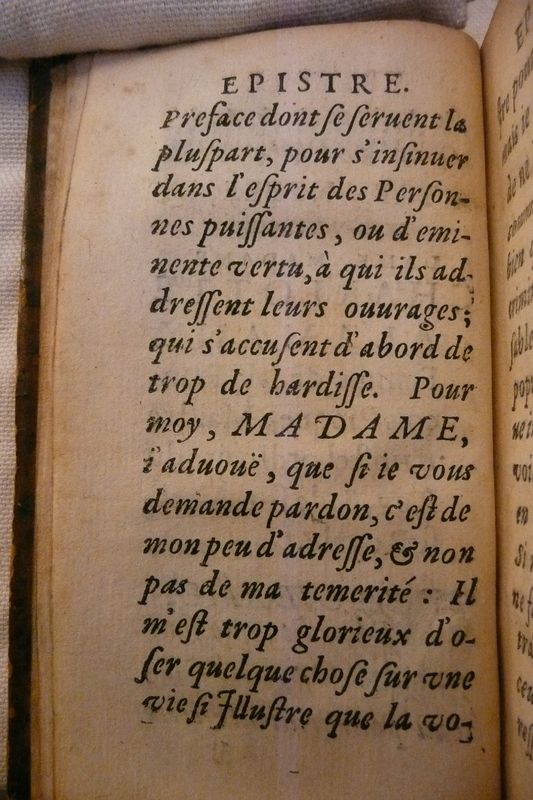 EPISTRE.
Preface dont se seruent la
pluspart, pour s'insinuer
dans l'esprit des Person-
nes puissantes, ou d'emi-
nente vertu, à qui ils ad-
dressent leurs ouurages;
qui s'accusent d'abord de
trop de hardisse. Pour
moy, MADAME,
i'aduouë, que si ie vous
demande pardon, c'est de
mon peu d'adresse, & non
pas de ma temerité : Il
m'est trop glorieux d'o-
ser quelque chose sur vne
vie si Illustre que la vo-